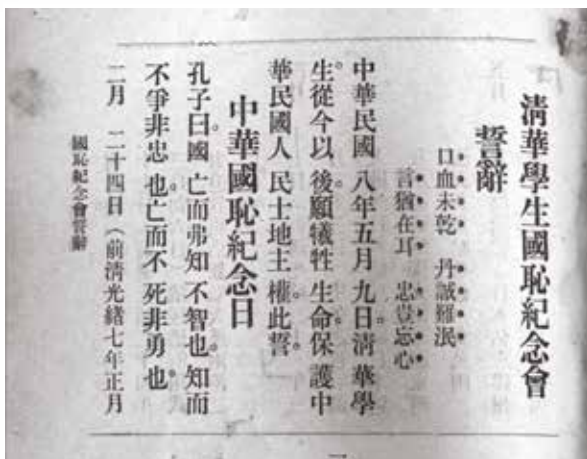 清華學生國恥紀念會
誓辭
口血未乾 丹誠難泯
言猶在耳 忠豈忘心
中華民國八年五月九日清華學
生。從今以後。願犧牲生命保護中
華民國人民土地主權。此誓。
中華國恥紀念日
孔子曰。國亡而弗知。不智也。知而
不爭。非忠也。亡而不死。非勇也。
二月 二十四日（前清光緒七年正月
國恥紀念會誓辭
一